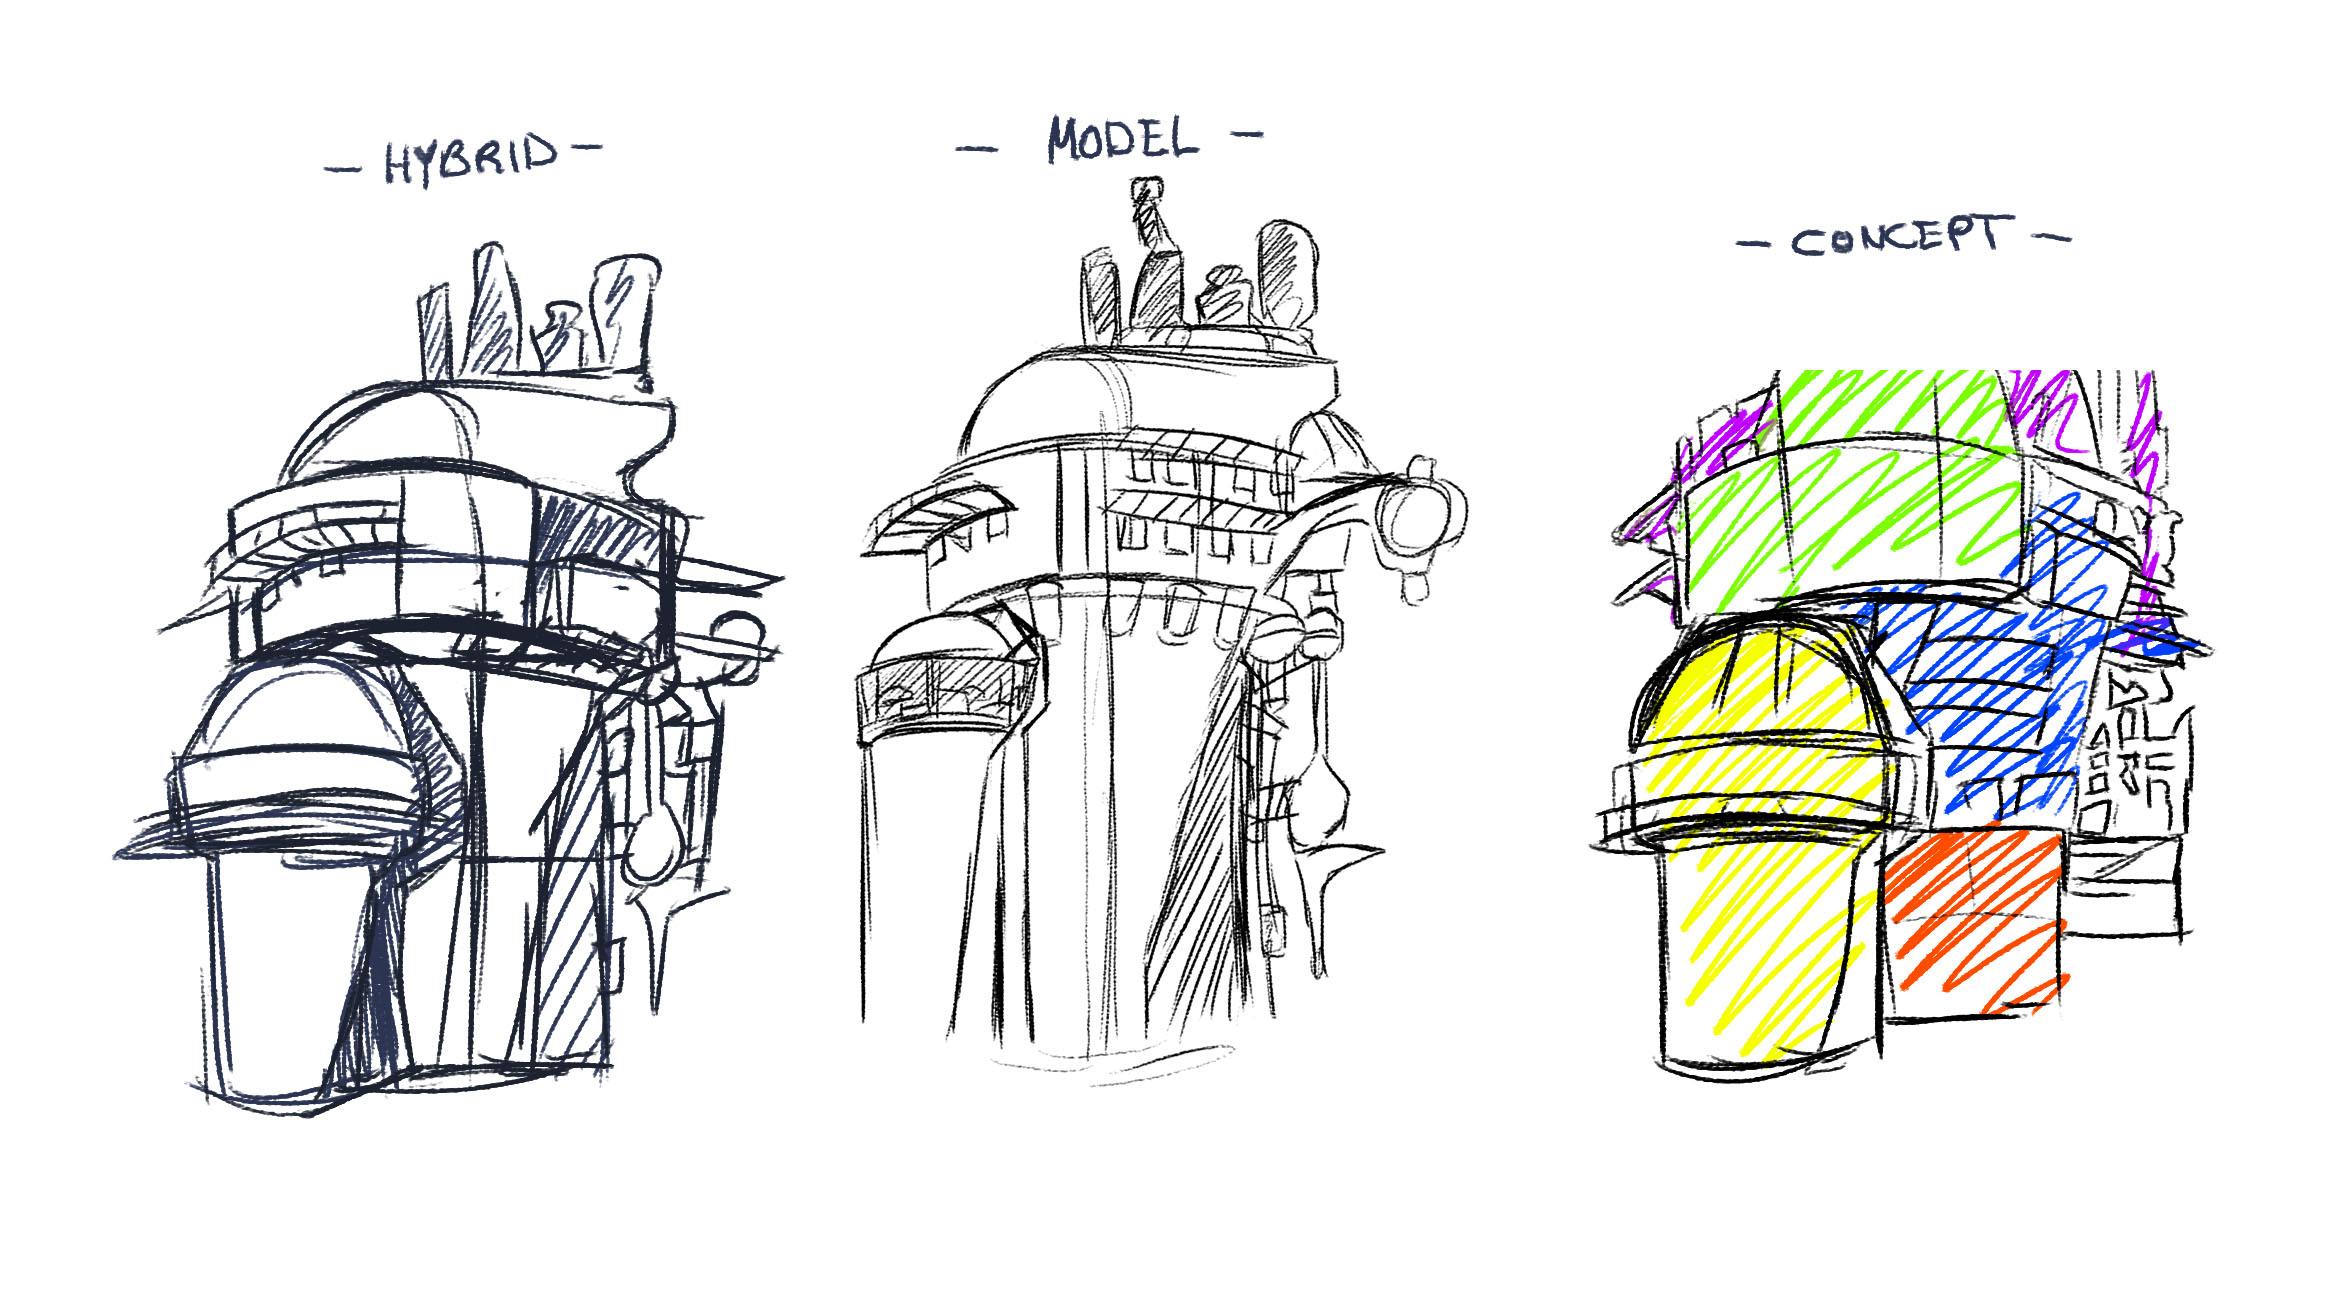 - HYBRID -
- MODEL -
- CONCEPT -